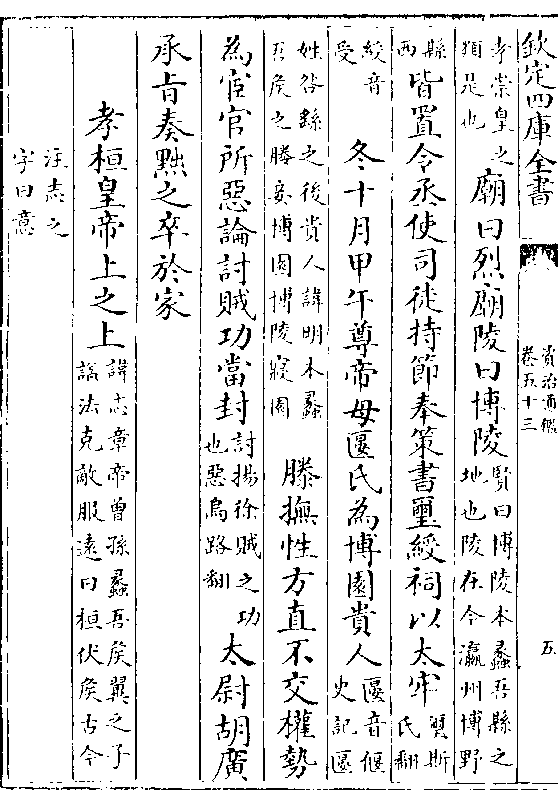 欽定四庫全書
資治通鑑
卷五十三
五
孝崇皇之
類是也
廟曰烈廟陵曰博陵
賢曰博陵本蠡吾縣之
地也陵在今瀛州博野
縣
西
皆置令丞使司徒持節奉策書璽綬祠以太牢
璽斯
氏翻
綬音
受
冬十月甲午尊帝母匽氏為博園貴人
匽音偃
史記匽
姓咎繇之後貴人諱明本蠡
吾侯之媵妾博園博陵寢園
滕撫性方直不交權勢
為宦官所惡論討賊功當封
討揚徐賊之功
也惡烏路翻
太尉胡廣
承旨奏黜之卒於家
孝桓皇帝上之上
諱志章帝曾孫蠡吾侯翼之子
諡法克敵服遠曰桓伏侯古今
注志之
字曰意